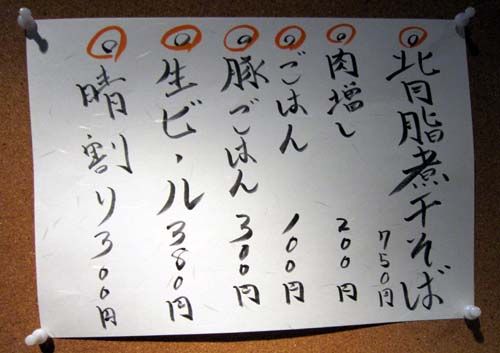 背脂煮干そば 750円
肉増し 200円
ごはん 100円
豚ごはん 300円
生ビール 380円
晴割り 300円